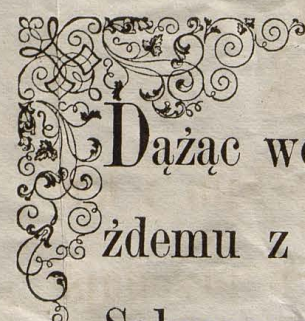 Dążąc w
żdemu z